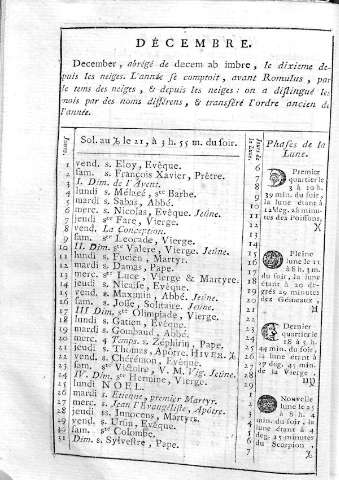 DÉCEMBRE.
December, abrégé de decem ab imbre, le dixieme de-
puis les neiges. L'année se comptoit, avant Romulus, par
le tems des neiges, & depuis les neiges: on a distingué les
mois par des noms différens, & transféré l'ordre ancien de
l'année.
Jours.
Sol. au ♑ le 21, à 3 h. 55 m. du soir.
1 vend. s. Eloy, Evêque.
2 sam. s. François Xavier, Prêtre.
3 I. Dim. de l'Avent.
4 lundi s. Mélaxé, ste Barbe.
5 mardi s. Sabas, Abbé.
6 merc. s. Nicolas, Evêque. Jeûne.
7 jeudi ste Fare, Vierge.
8 vend. La Conception.
9 sam. ste Léocade, Vierge.
10 II. Dim. ste Valere, Vierge. Jeûne.
11 lundi s. Fucien, Martyr.
12 mardi s. Damas, Pape.
13 merc. ste Luce, Vierge & Martyre.
14 jeudi s. Nicaise, Evêque.
15 vend. s. Maximin, Abbé. Jeûne.
16 sam. s. Josse, Solitaire. Jeûne.
17 III Dim. ste Olimpiade, Vierge.
18 lundi s. Gatien, Evêque.
19 mardi s. Gombaud, Abbé.
20 merc. 4 Temps. s. Zéphirin, Pape.
21 jeudi s. Thomas, Apôtre. HIVER. ♑
22 vend. s. Chérémon, Evêque.
23 sam. ste Victoire, V. M. Vig. Jeûne.
24 IV. Dim. ste Hermine, Vierge.
25 lundi NOEL.
26 mardi s. Etienne, premier Martyr.
27 merc. s. Jean l'Evangéliste, Apôtre.
28 jeudi ss. Innocens, Martyrs.
29 vend. s. Urbin, Evêque.
30 sam. ste Colombe.
31 Dim. s. Sylvestre, Pape.
Jours de la Lune.
6
7
8
9
10
11
12
13
14
15
16
17
18
19
20
21
22
23
24
25
26
27
28
29
1
2
3
4
5
6
7
Phases de la
Lune.
Premier
quartier le
3 à 10 h.
39 m. du soir,
la lune étant à
12 deg. 28 minutes
des Poissons.
Pleine
lune le 11
à 8 h. 3 m.
du soir, la lune
étant à 20 de-
grés 29 minutes
des Gémeaux.
Dernier
quartier le
18 à 5 h.
44 min. du soir,
la lune étant à
27 deg. 45 min.
de la Vierge.
Nouvelle
lune le 25
à 8 h. 4
m. du soir, la
lune étant à 4
deg. 25 minutes
du Scorpion.